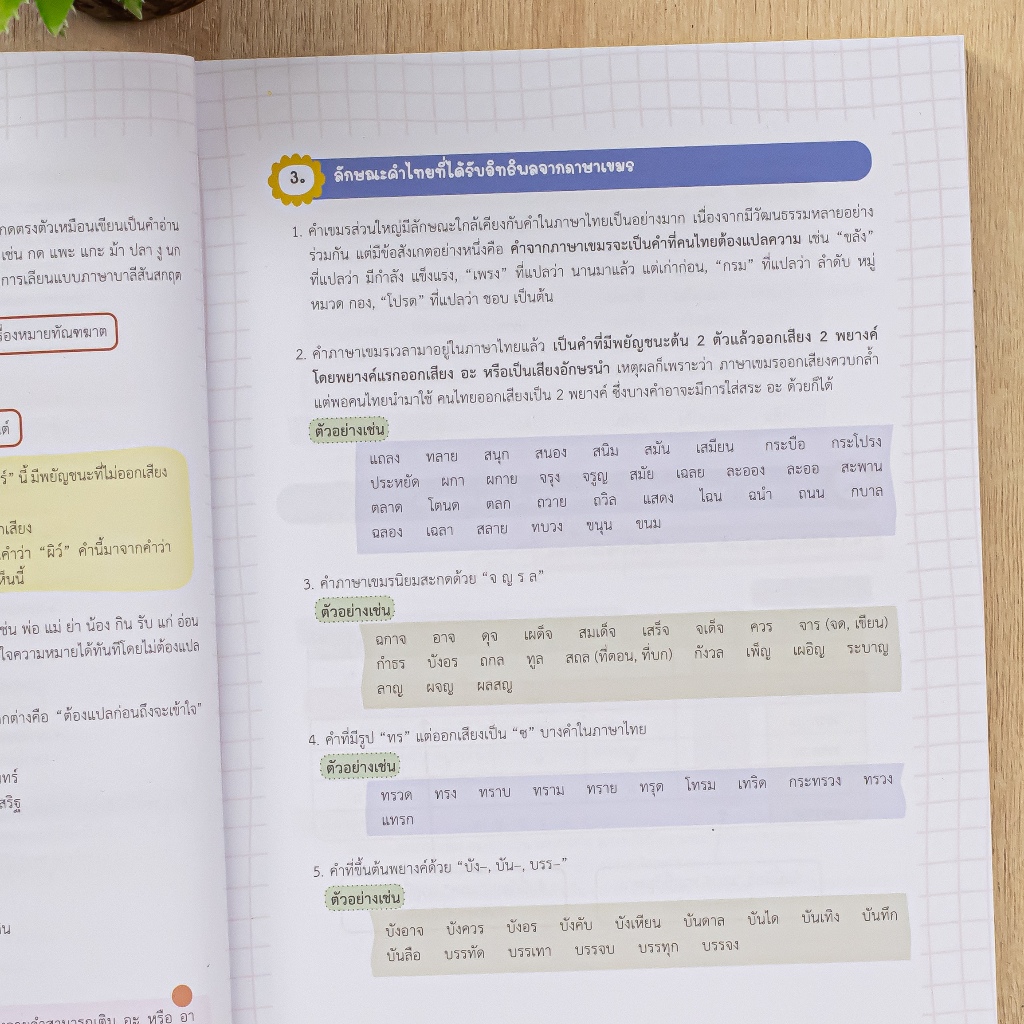 กดตรงตัวเหมือนเขียนเป็นคำอ่าน
เช่น กด แพะ แกะ ม้า ปลา งู นก
การเลียนแบบภาษาบาลีสันสกฤต
เครื่องหมายทัณฑฆาต
ร์” นี้ มีพยัญชนะที่ไม่ออกเสียง
กเสียง
คำว่า “ผิว์” คำนี้มาจากคำว่า
ห็นนี้
ช่น พ่อ แม่ ย่า น้อง กิน รับ แก่ อ่อน
ใจความหมายได้ทันทีโดยไม่ต้องแปล
กต่างคือ “ต้องแปลก่อนถึงจะเข้าใจ”
ทร์
สริฐ
3. ลักษณะคำไทยที่ได้รับอิทธิพลจากภาษาเขมร
1. คำเขมรส่วนใหญ่มีลักษณะใกล้เคียงกับคำในภาษาไทยเป็นอย่างมาก เนื่องจากมีวัฒนธรรมหลายอย่าง
ร่วมกัน แต่มีข้อสังเกตอย่างหนึ่งคือ คำจากภาษาเขมรจะเป็นคำที่คนไทยต้องแปลความ เช่น “ขลัง”
ที่แปลว่า มีกำลัง แข็งแรง, “เพรง” ที่แปลว่า นานมาแล้ว แต่เก่าก่อน, “กรม” ที่แปลว่า ลำดับ หมู่
หมวด กอง, “โปรด” ที่แปลว่า ชอบ เป็นต้น
2. คำภาษาเขมรเวลามาอยู่ในภาษาไทยแล้ว เป็นคำที่มีพยัญชนะต้น 2 ตัวแล้วออกเสียง 2 พยางค์
โดยพยางค์แรกออกเสียง อะ หรือเป็นเสียงอักษรนำ เหตุผลก็เพราะว่า ภาษาเขมรออกเสียงควบกล้ำ
แต่พอคนไทยนำมาใช้ คนไทยออกเสียงเป็น 2 พยางค์ ซึ่งบางคำอาจจะมีการใส่สระ อะ ด้วยก็ได้
ตัวอย่างเช่น
แถลง ทลาย สนุก สนอง สนิม สมัน เสมียน กระบือ กระโปรง
ประหยัด ผกา ผกาย จรุง จรูญ สมัย เฉลย ละออง ละออ สะพาน
ตลาด โตนด ตลก ถวาย ถวิล แสดง ไฉน ฉนำ ถนน กบาล
ฉลอง เฉลา สลาย ทบวง ขนุน ขนม
3. คำภาษาเขมรนิยมสะกดด้วย “จ ญ ร ล”
ตัวอย่างเช่น
ฉกาจ อาจ ดุจ เผด็จ สมเด็จ เสร็จ จเด็จ ควร จาร (จด, เขียน)
กำธร บังอร ถกล ทูล สถล (ที่ดอน, ที่บก) กังวล เพ็ญ เผอิญ ระบาญ
ลาญ ผจญ ผลสญ
4. คำที่มีรูป “ทร” แต่ออกเสียงเป็น “ซ” บางคำในภาษาไทย
ตัวอย่างเช่น
ทรวด ทรง ทราบ ทราม ทราย ทรุด โทรม เทริด กระทรวง ทรวง
แทรก
5. คำที่ขึ้นต้นพยางค์ด้วย “บัง–, บัน–, บรร–”
ตัวอย่างเช่น
บังอาจ บังควร บังอร บังคับ บังเหียน บันดาล บันได บันเทิง บันทึก
บันลือ บรรทัด บรรเทา บรรจบ บรรทุก บรรจง